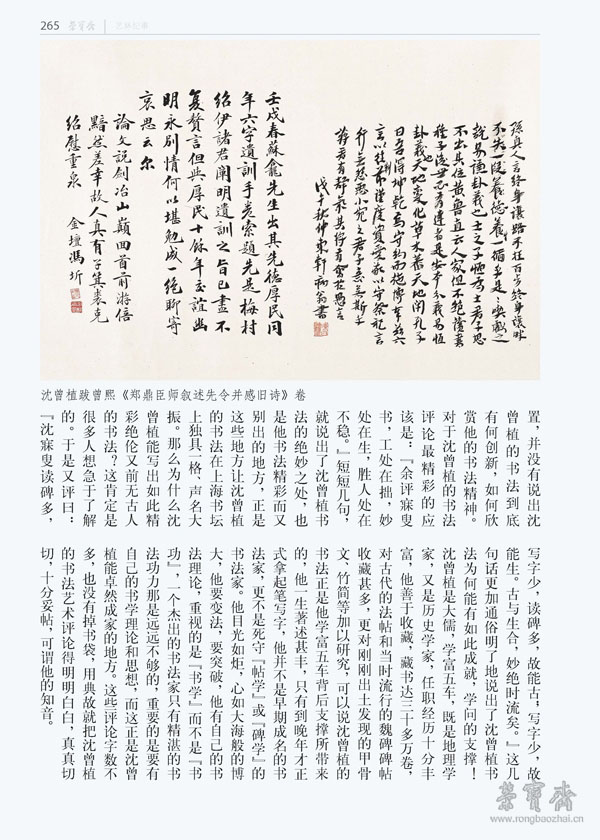 265 榮寶齋 艺林纪事
孫真人言終身讓路不枉百步終身讓畔
不失一段
不出其位黃魯直云人家但不絕讀書
種子
卦義天地變化草木蕃天地閉
戊午秋仲東軒病翁書
壬戌春蘇龕先生出其先德厚民同
年六字遺訓手卷索題先是梅村
紹伊諸君闡明遺訓之旨已盡不
复贅言但與厚民十餘年交誼幽
明永别情何以堪勉成一絶聊寄
哀思云尔
論文説劍冶山巔回首前游倍
黯然差幸故人真有子箕裘克
紹慰重泉 金壇馮圻
沈曾植跋曾熙《郑鼎臣师叙述先令并感旧诗》卷
置，并没有说出沈
曾植的书法到底
有何创新，如何欣
赏他的书法精神。
对于沈曾植的书法
评论最精彩的应
该是：『余评寐叟
书，工处在拙，妙
处在生，胜人处在
不稳。』短短几句，
就说出了沈曾植书
法的绝妙之处，也
是他书法精彩而又
别出的地方，正是
这些地方让沈曾植
的书法在上海书坛
上独具一格、声名大
振。那么为什么沈
曾植能写出如此精
彩绝伦又前无古人
的书法？这肯定是
很多人想急于了解
的。于是又评曰：
『沈寐叟读碑多，
写字少，读碑多，故能古；写字少，故
能生。古与生合，妙绝时流矣。』这几
句话更加通俗明了地说出了沈曾植书
法为何能有如此成就，学问的支撑！
沈曾植是大儒，学富五车，既是地理学
家，又是历史学家，任职经历十分丰
富，他善于收藏，藏书达三十多万卷，
对古代的法帖和当时流行的魏碑碑帖
收藏甚多，更对刚刚出土发现的甲骨
文、竹简等加以研究，可以说沈曾植的
书法正是他学富五车背后支撑所带来
的，他一生著述甚丰，只有到晚年才正
式拿起笔写字，他并不是早期成名的书
法家，更不是死守『帖学』或『碑学』的
书法家。他目光如炬，心如大海般的博
大，他要变法，要突破，他有自己的书
法理论，重视的是『书学』而不是『书
功』，一个杰出的书法家只有精湛的书
法功力那是远远不够的，重要的是要有
自己的书学理论和思想，而这正是沈曾
植能卓然成家的地方。这些评论字数不
多，也没有掉书袋，用典故就把沈曾植
的书法艺术评论得明明白白，真真切
切，十分妥帖，可谓他的知音。
榮寶齋
www.rongbaozhai.cn